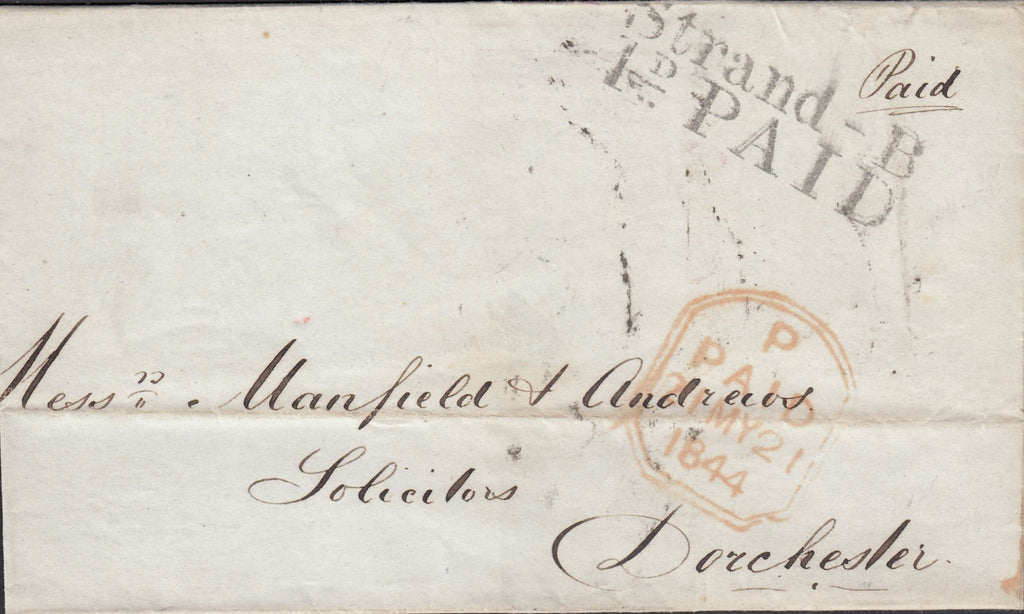 Strand - B
1D PAID
Paid
P
PAID
21 MY 21
1844
Messrs. Manfield & Andrews
Solicitors
Dorchester.